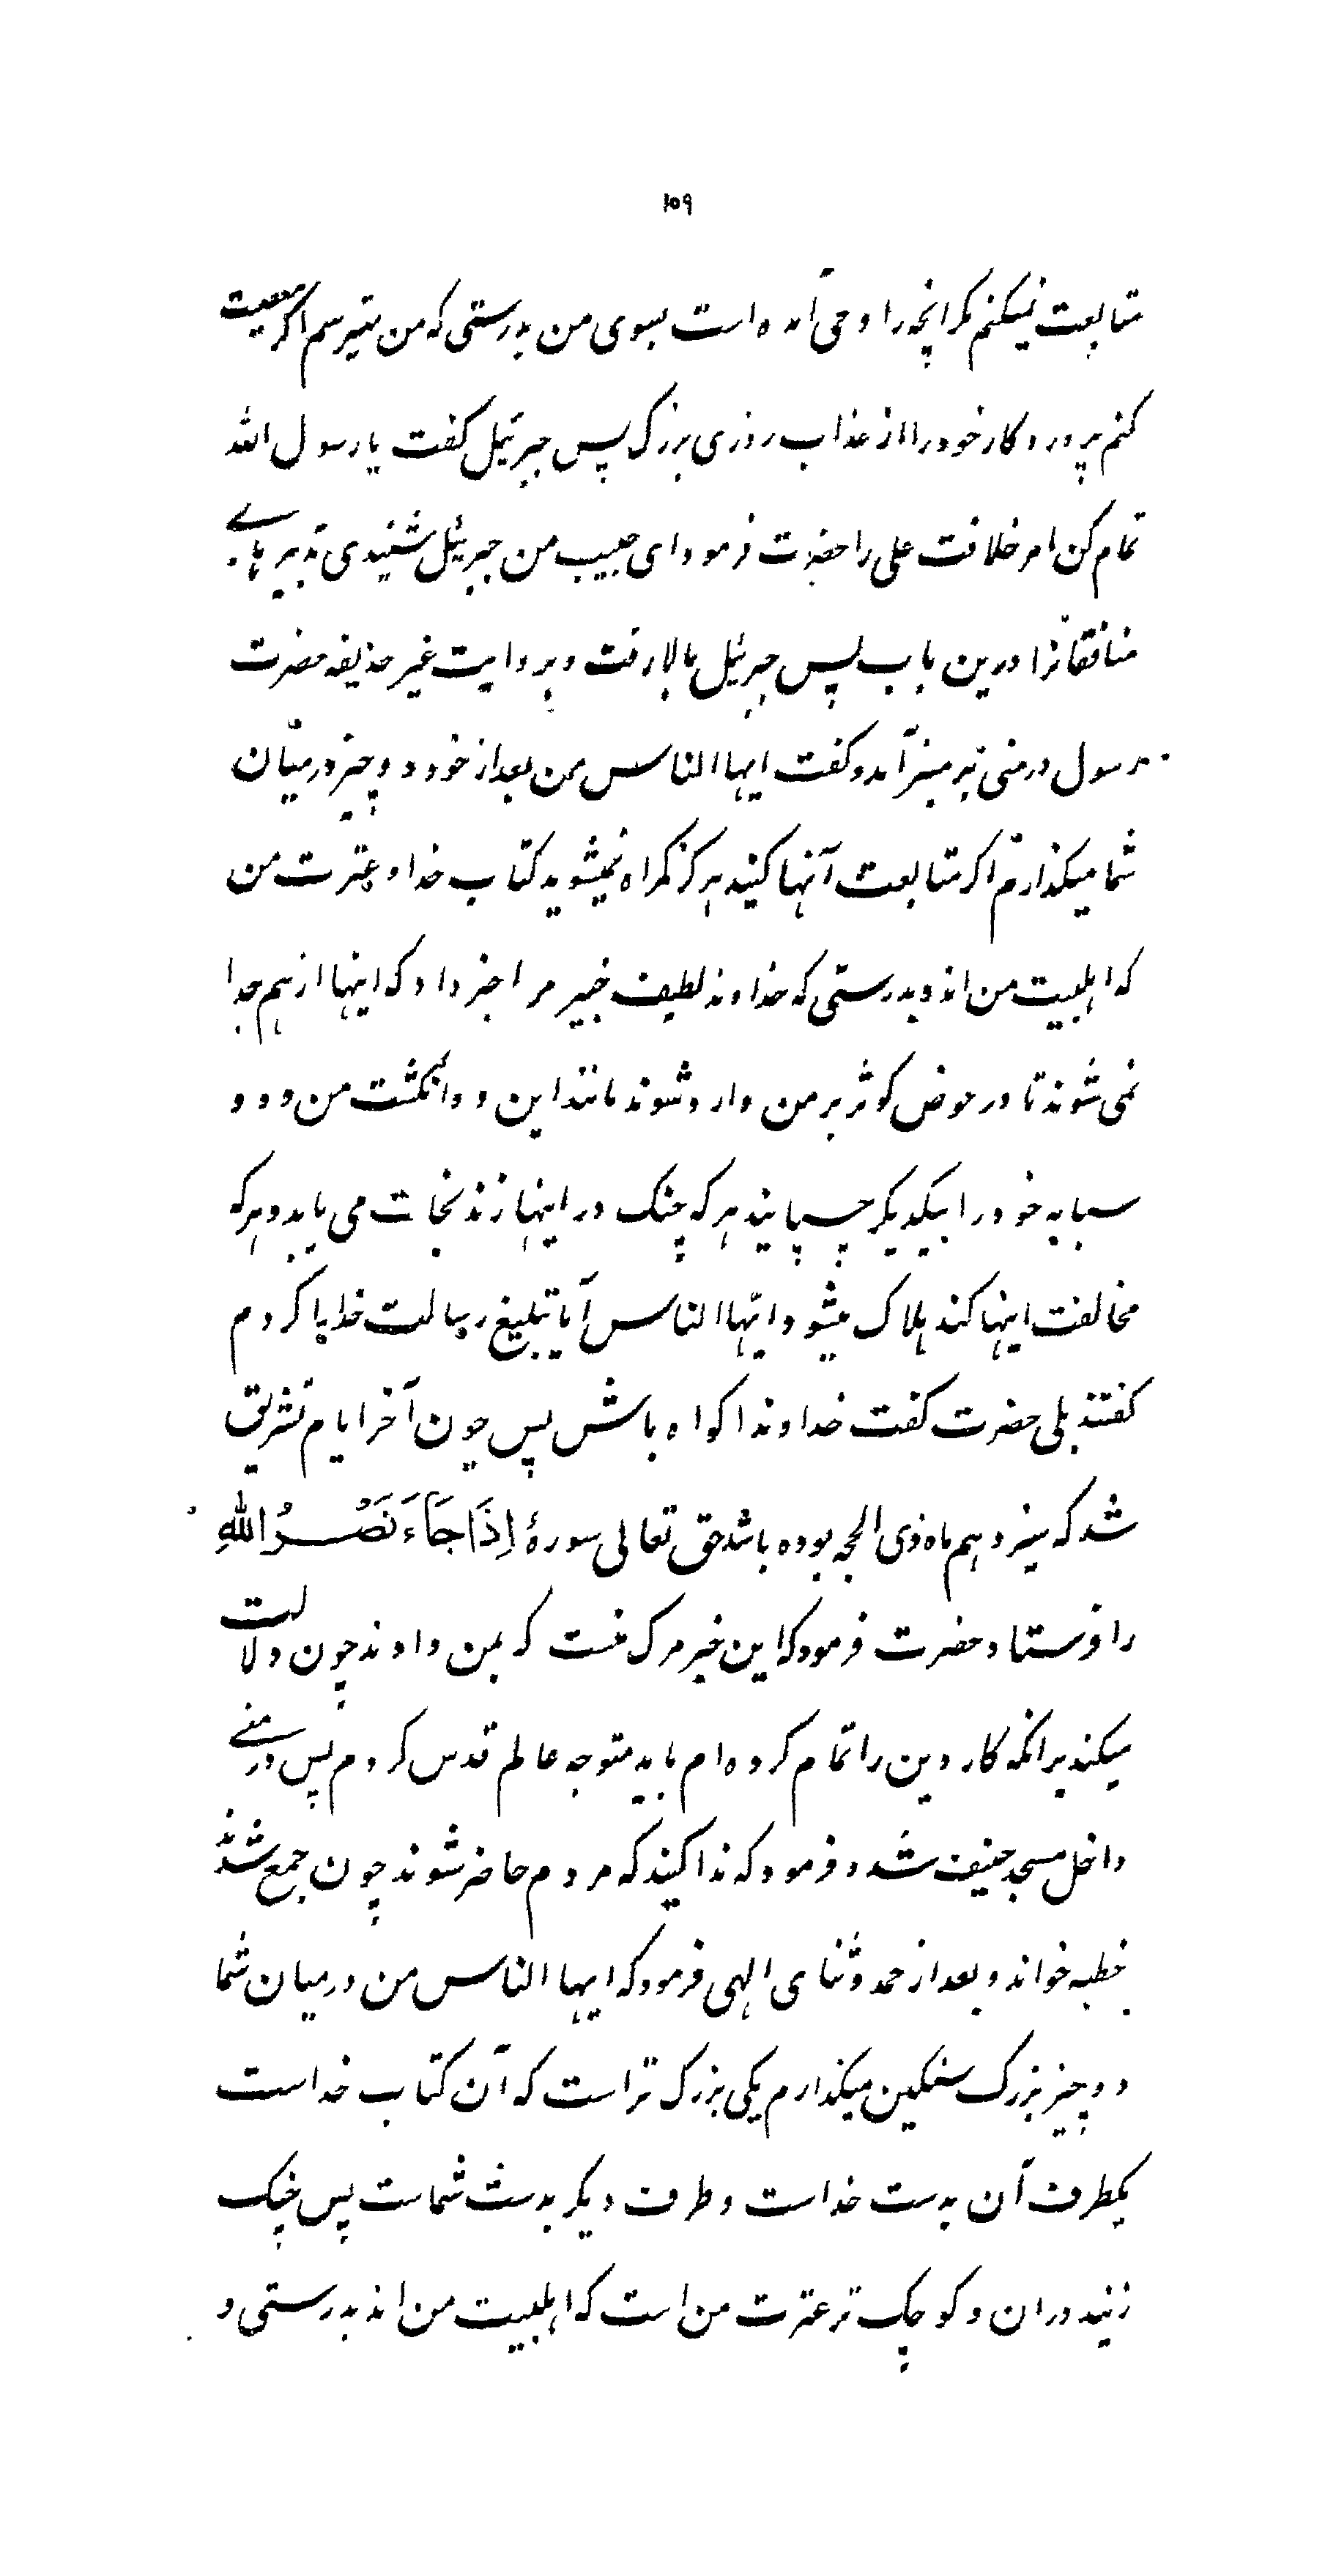 ۱۵۹
متابعت نمیکنم مکر انچه را وحی آمده است بسوی من بدرستی که من میترسم اکر معصیت
کنم پروردکار خود را از عذاب روزی بزرک پس جبرئیل کفت یا رسول الله
تمام کن امر خلافت علی را حضرت فرمود ای حبیب من جبرئیل شنیدی تدبیرهاے
منافقانرا درین باب پس جبرئیل بالا رفت و بروایت غیر حذیفه حضرت
رسول در منی بر منبر آمد و کفت ایها الناس من بعد از خود دو چیز در میان
شما میکذارم اکر متابعت آنها کنید هرکز کمراه نمیشوید کتاب خدا و عترت من
که اهلبیت من اند و بدرستی که خداوند لطیف خبیر مرا خبر داد که اینها از هم جدا
نمی شوند تا در حوض کوثر بر من وارد شوند مانند این دو انکشت من و دو
سبابه خود را بیکدیکر چسپانید هر که چنک در اینها زند نجات می یابد و هر که
مخالفت اینها کند هلاک میشود ایها الناس آیا تبلیغ رسالت خدا یا کردم
کفتند بلی حضرت کفت خداوندا کواه باش پس چون آخر ایام تشریق
شد که سیزدهم ماه ذی الحجه بوده باشد حق تعالی سورهٔ اِذَا جَاءَ نَصْرُ اللهِ
را فرستاد حضرت فرمود که این خبر مرک منست که بمن دادند چون دلالت
میکند بر انکه کار دین را تمام کرده ام باید متوجه عالم قدس کردم پس در منے
داخل مسجد حنیف شد و فرمود که ندا کنید که مردم حاضر شوند چون جمع شدند
خطبه خواند و بعد از حمد و ثنای الهی فرمود که ایها الناس من در میان شما
دو چیز بزرک سنکین میکذارم یکی بزرک تر است که آن کتاب خداست
یکطرف آن بدست خداست و طرف دیکر بدست شماست پس چنک
زنید در ان و کوچک تر عترت من است که اهلبیت من اند بدرستی و